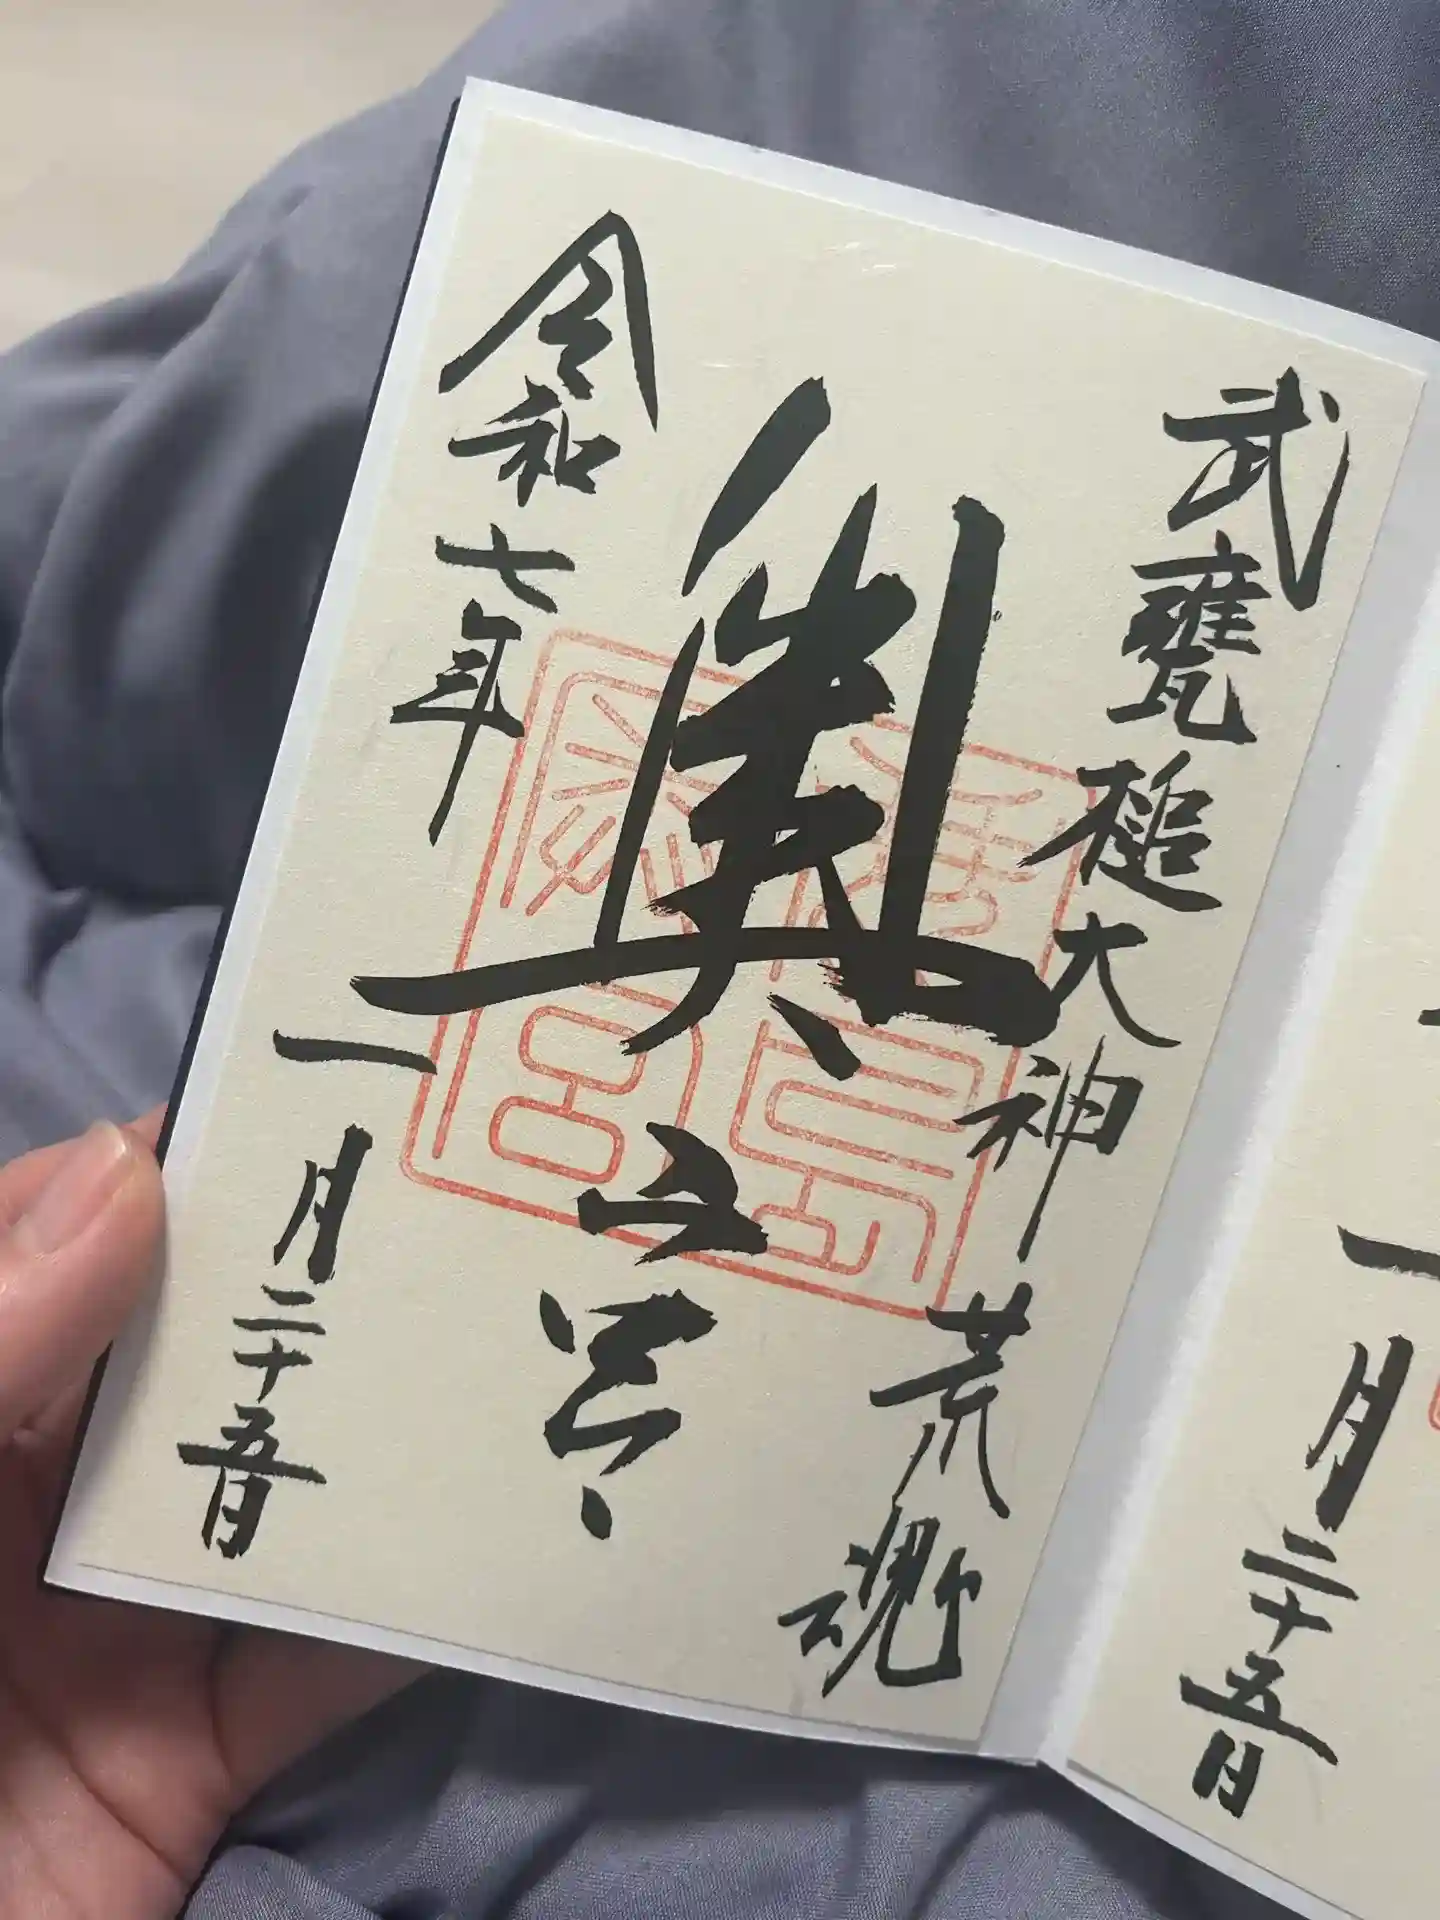 一月二十五日
武甕槌大神 荒魂
奥之宮
鹿島
奥宮
令和七年一月二十五日